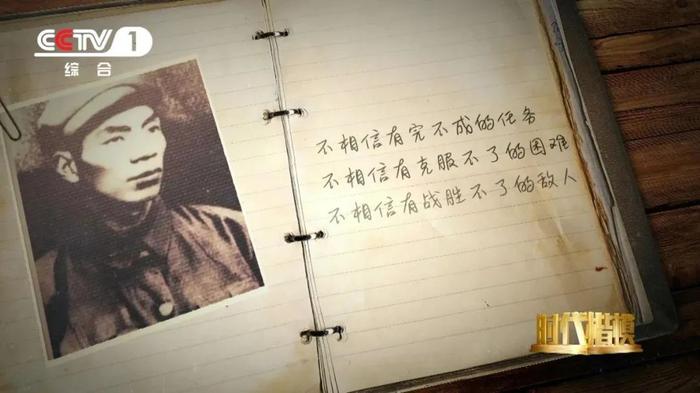 CCTV 1
综合
不相信有完不成的任务
不相信有克服不了的困难
不相信有战胜不了的敌人
时代楷模